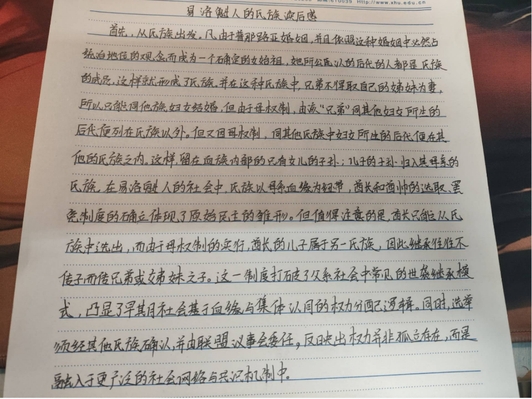 http://www.xhu.edu.cn
易洛魁人的氏族读后感
首先,从氏族出发,凡由于普那路亚婚姻,并且依照这种婚姻中必然占
统治地位的观念而成为一个确定的女始祖,她所公认的后代的人都是氏族
的成员,这样就形成了氏族。并在这种氏族中,兄弟不得娶自己的姊妹为妻,
所以只能同他族妇女结婚,但由于母权制,由该“兄弟”同其他妇女所生的
后代便列在氏族以外。但又因母权制,同其他氏族中妇女所生的后代便在其
他的氏族之内。这样留在血族内部的只有女儿的子孙;儿子的子孙归入其母亲的
氏族。在易洛魁人的社会中,氏族以母系血缘为纽带,酋长和酋帅的选取、罢
免制度的确立体现了原始民主的雏形。但值得注意的是,酋长只能从氏
族中选出,而由于母权制的实行,酋长的儿子属于另一氏族,因此继承往往不
传子而传兄弟或姊妹之子。这一制度打破了父系社会中常见的世袭继承模
式,凸显了早期社会基于血缘与集体认同的权力分配逻辑。同时,选举
须经其他氏族确认并由联盟议事会委任,反映出权力并非孤立存在,而是
融入于更广泛的社会网络与共识机制中。